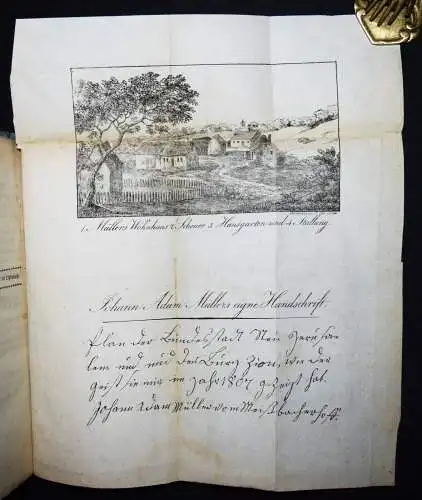 1. Müllers Wohnhaus 2. Scheuer 3. Hausgarten und 4. Stallung.
Johann Adam Müllers eigne Handschrift.
Plan der Bundesstadt Neu Jerusa
lem und mid der Burg Zion, wie der
Geist sie mir im Jahr 1807 gezeigt hat.
Johann Adam Müller vom Meißbacherhoff.